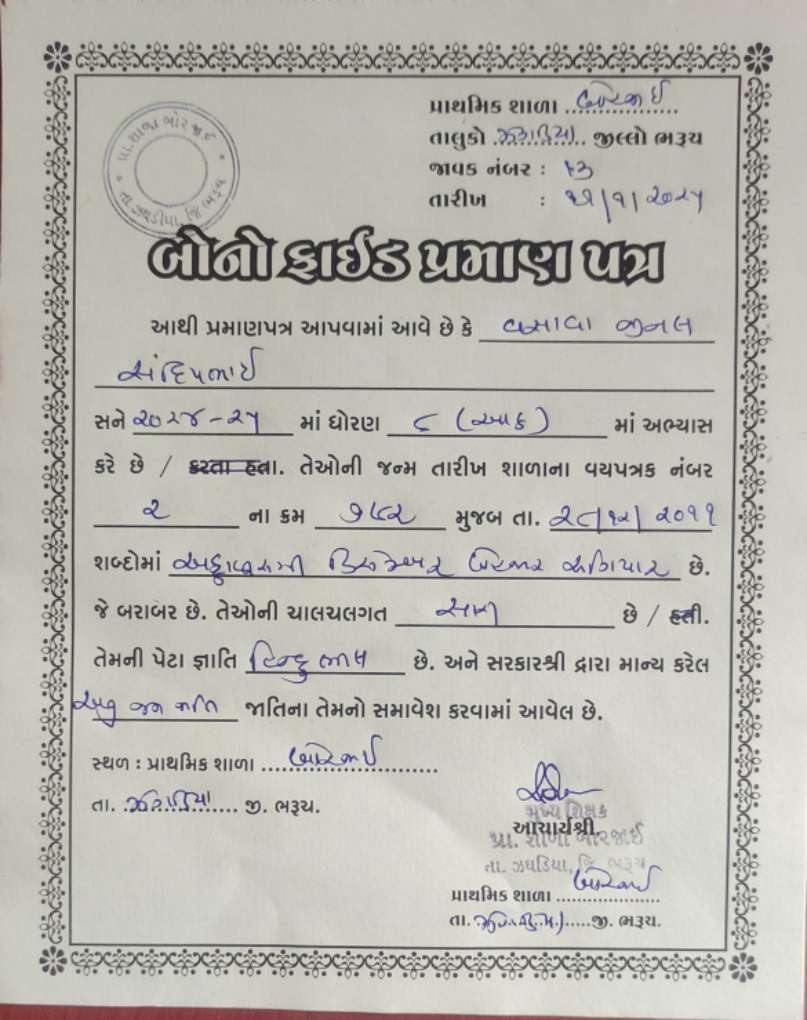 પ્રા.શાળા બોરજાઈ
તા. ઝઘડીયા, જિ. ભરૂચ
પ્રાથમિક શાળા બોરજાઈ
તાલુકો ઝઘડિયા જીલ્લો ભરૂચ
જાવક નંબર :
તારીખ : /૧/૨૦૨૫
બોનો ફાઈડ પ્રમાણ પત્ર
આથી પ્રમાણપત્ર આપવામાં આવે છે કે વસાવા જીનલ
સંદિપભાઈ
સને ૨૦૨૪-૨૫ માં ધોરણ ૮ (આઠ) માં અભ્યાસ
કરે છે / કરતા હતા. તેઓની જન્મ તારીખ શાળાના વયપત્રક નંબર
૨ ના ક્રમ મુજબ તા. ૨૮/૧૨/૨૦૧૧
શબ્દોમાં અઠ્ઠાવીસમી ડિસેમ્બર બેહજાર અગિયાર છે.
જે બરાબર છે. તેઓની ચાલચલગત સારી છે / હતી.
તેમની પેટા જ્ઞાતિ હિન્દુ ભીલ છે. અને સરકારશ્રી દ્વારા માન્ય કરેલ
અનુ જન જાતિ જાતિના તેમનો સમાવેશ કરવામાં આવેલ છે.
સ્થળ : પ્રાથમિક શાળા બોરજાઈ
તા. ઝઘડિયા જી. ભરૂચ.
મુખ્ય શિક્ષક
આચાર્યશ્રી.
પ્રા. શાળા બોરજાઈ
તા. ઝઘડિયા, જિ. ભરૂચ
પ્રાથમિક શાળા બોરજાઈ
તા. ઝઘડિયા જી. ભરૂચ.